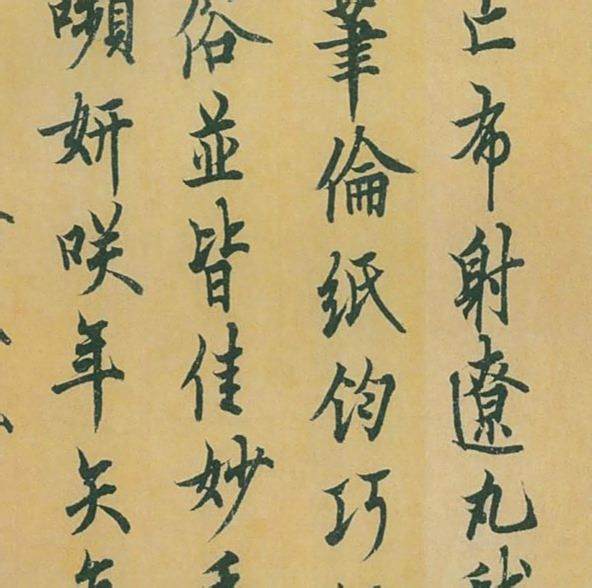 布射遼丸
筆倫紙鈞巧
俗並皆佳妙
嚬妍咲年矢